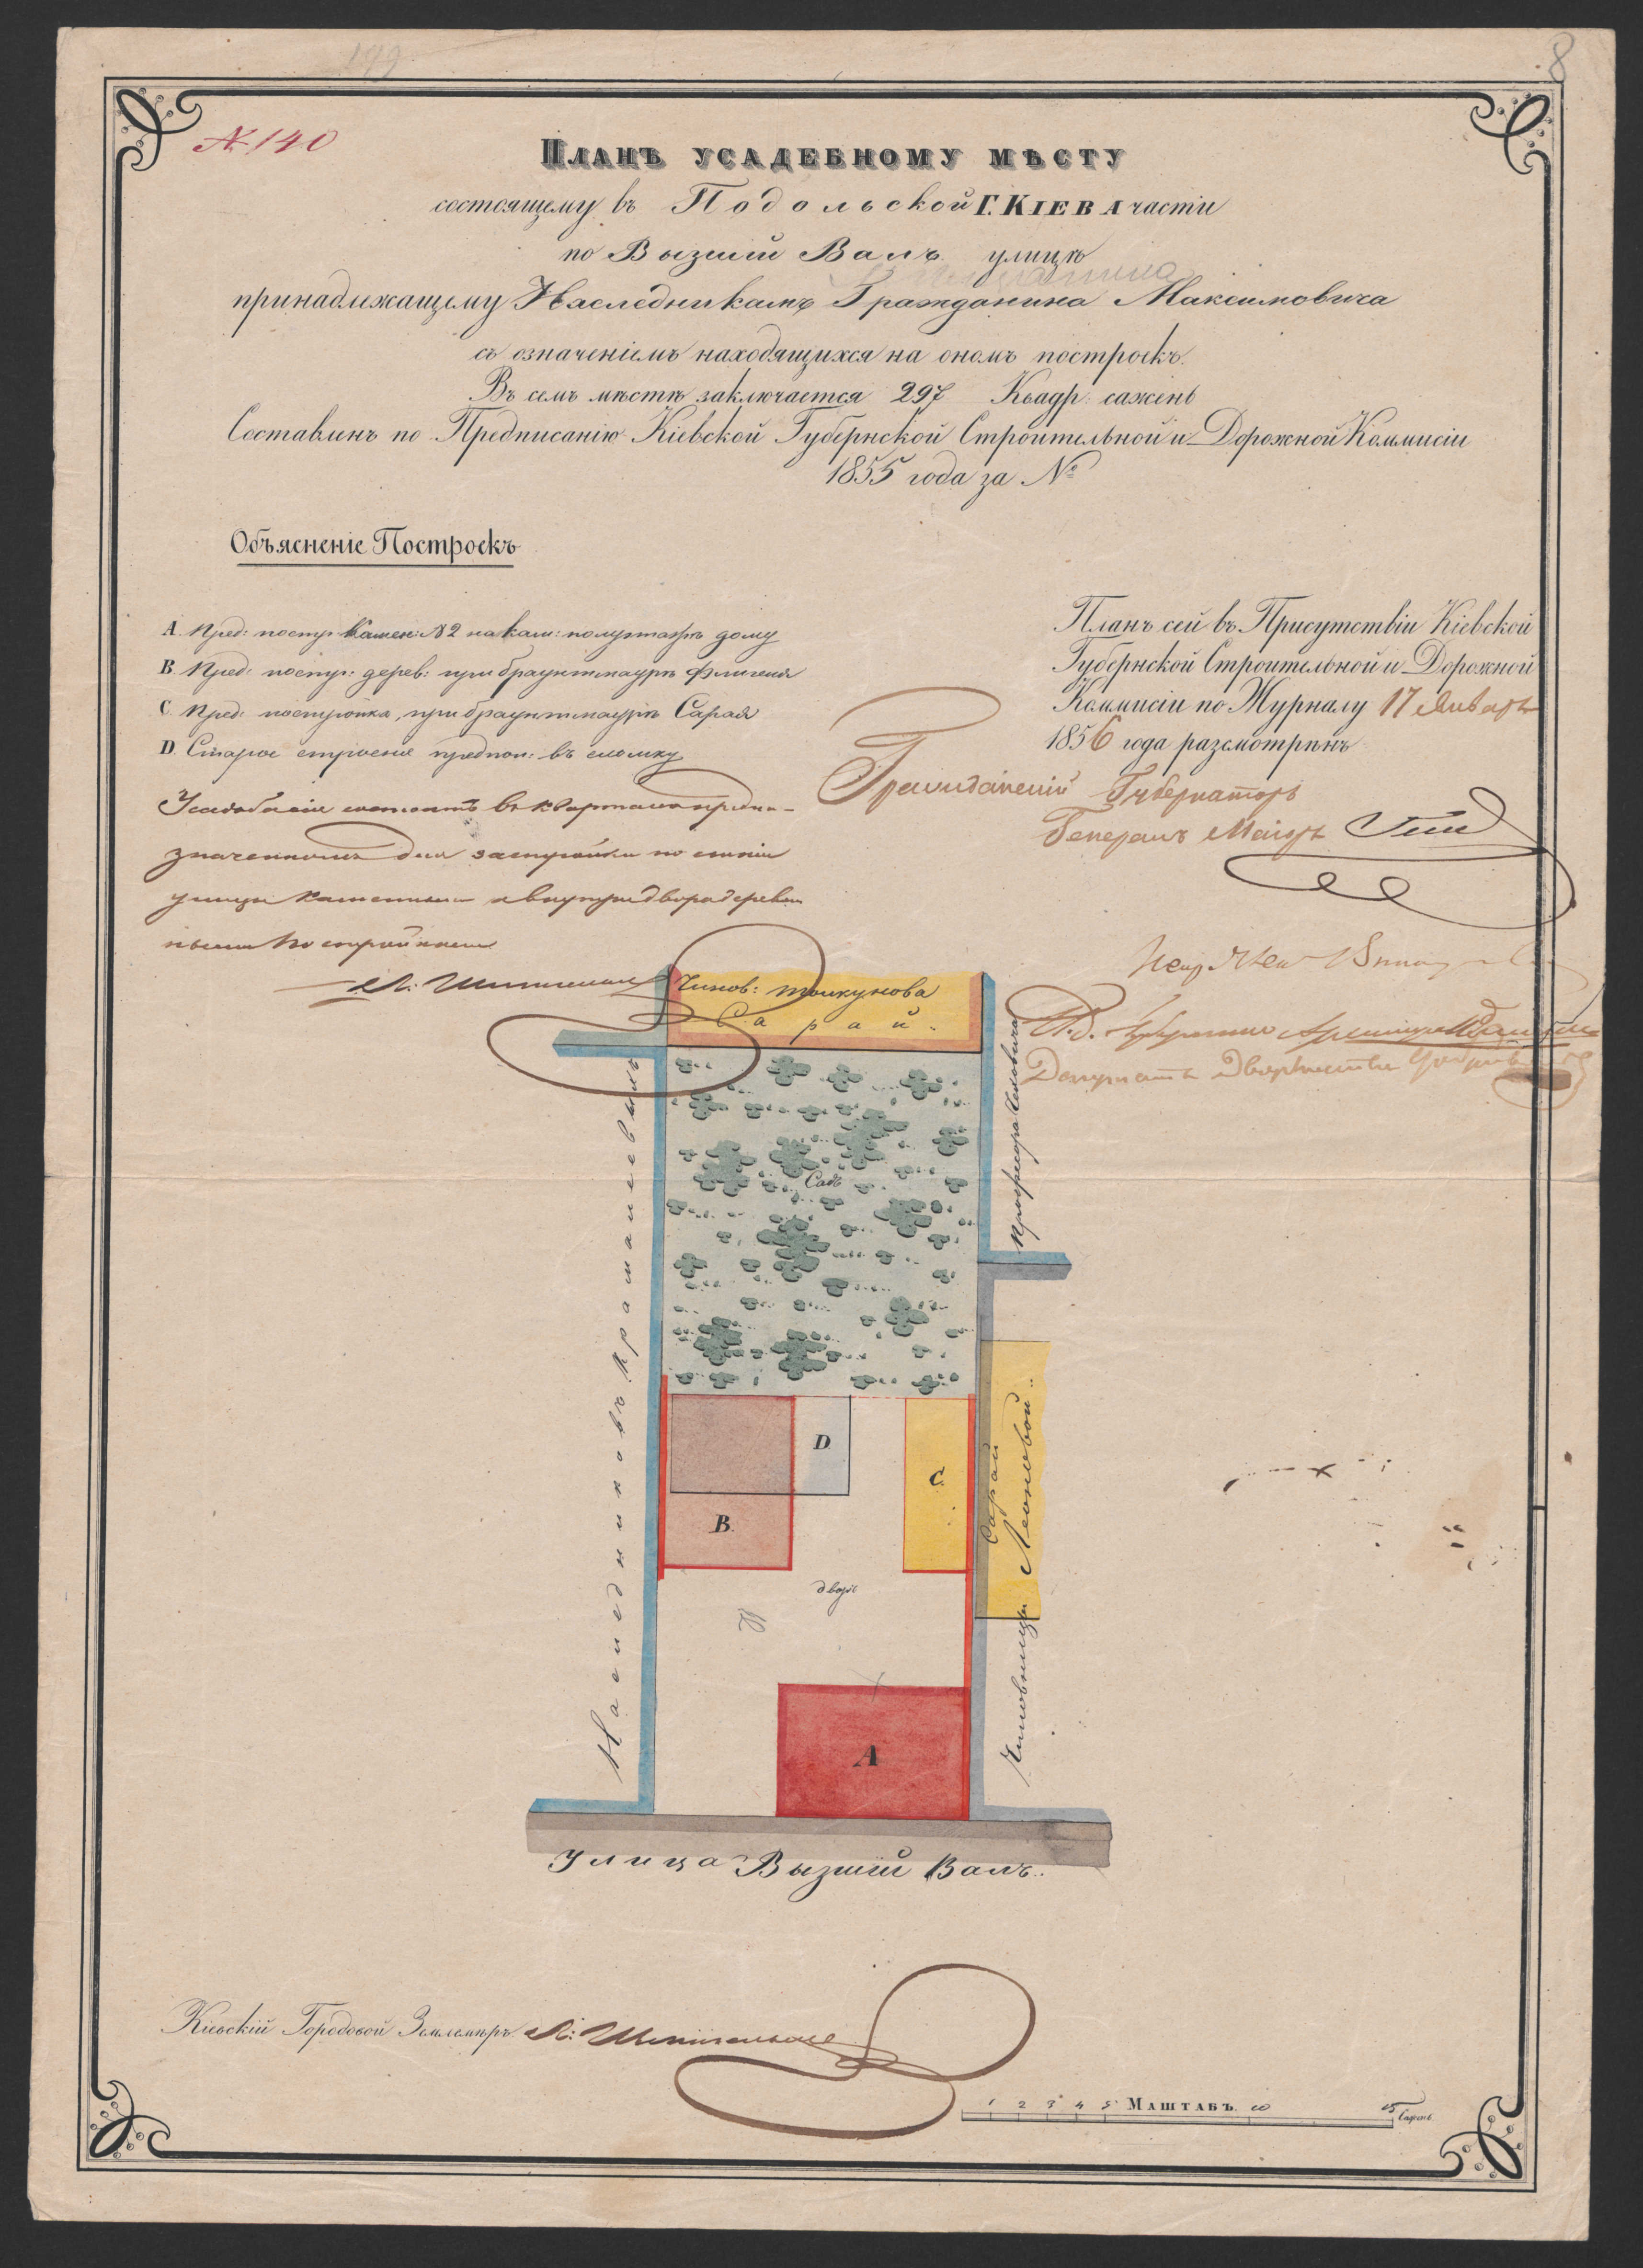 8
№ 140
Планъ усадебному мѣсту
состоящему въ Подольской Г. Кіева части
по Вызшій Валъ улицѣ
принадлежащему Наследникамъ Гражданина Максимовича
съ означеніемъ находящихся на ономъ построекъ.
Въ семъ мѣстѣ заключается 297 Квадр: сажень
Составленъ по Предписанію Кіевской Губернской Строительной и Дорожной Коммисіи
1855 года за №
Объясненіе Построекъ
A. Пред: постр: Камен: № 2 на кам: полуэтажѣ дому
B. Пред: постр: дерев: при брауктмаурѣ Флигеля
C. Пред: постройка, при брауктмаурѣ Сарая
D. Старое строение предпол: въ сломку
Усадьба сія состоитъ въ кварталѣ предна-
значенномъ для застройки по линіи
улицы каменными а внутри двора деревян
ными постройками
Планъ сей въ Присутствіи Кіевской
Губернской Строительной и Дорожной
Коммисіи по Журналу 17 Января
1856 года разсмотрѣнъ
Гражданскій Губернаторъ
Генералъ Маіоръ
И.д. Губернскаго Архитектора
Депутатъ Дворянства
Чинов: Толкунова
Сарай.
Профессора
Садъ
Наследниковъ
D.
C.
B.
Сарай
Чиновницы Леоновой
дворъ
A
Улица Вызшій Валъ.
Кіевскій Городовой Землемѣръ
1 2 3 4 5 Масштабъ. 10 15 Сажень